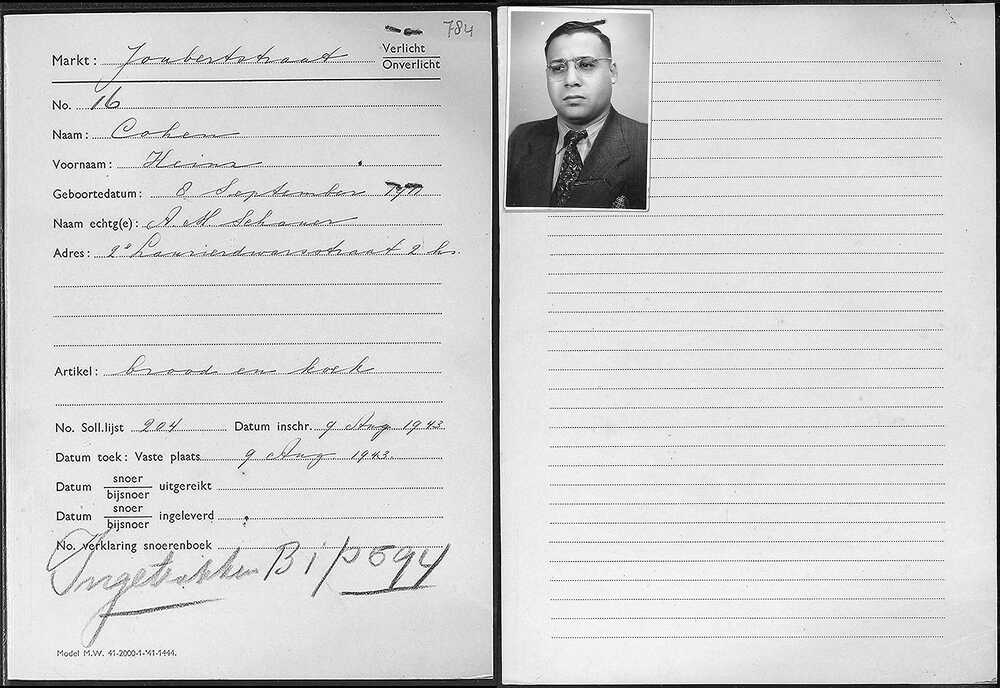 784
Markt: Joubertstraat
Verlicht
Onverlicht
No. 16
Naam: Cohen
Voornaam: Heinz
Geboortedatum: 8 September
Naam echtg(e): A M Schauer
Adres: 2e Laurierdwarsstraat 2 hs.
Artikel: brood en koek
No. Soll.lijst 204 Datum inschr. 9 Aug 1943
Datum toek: Vaste plaats 9 Aug 1943.
Datum snoer/bijsnoer uitgereikt
Datum snoer/bijsnoer ingeleverd
No. verklaring snoerenboek
Ingetrokken
Model M.W. 41-2000-1-'41-1444.